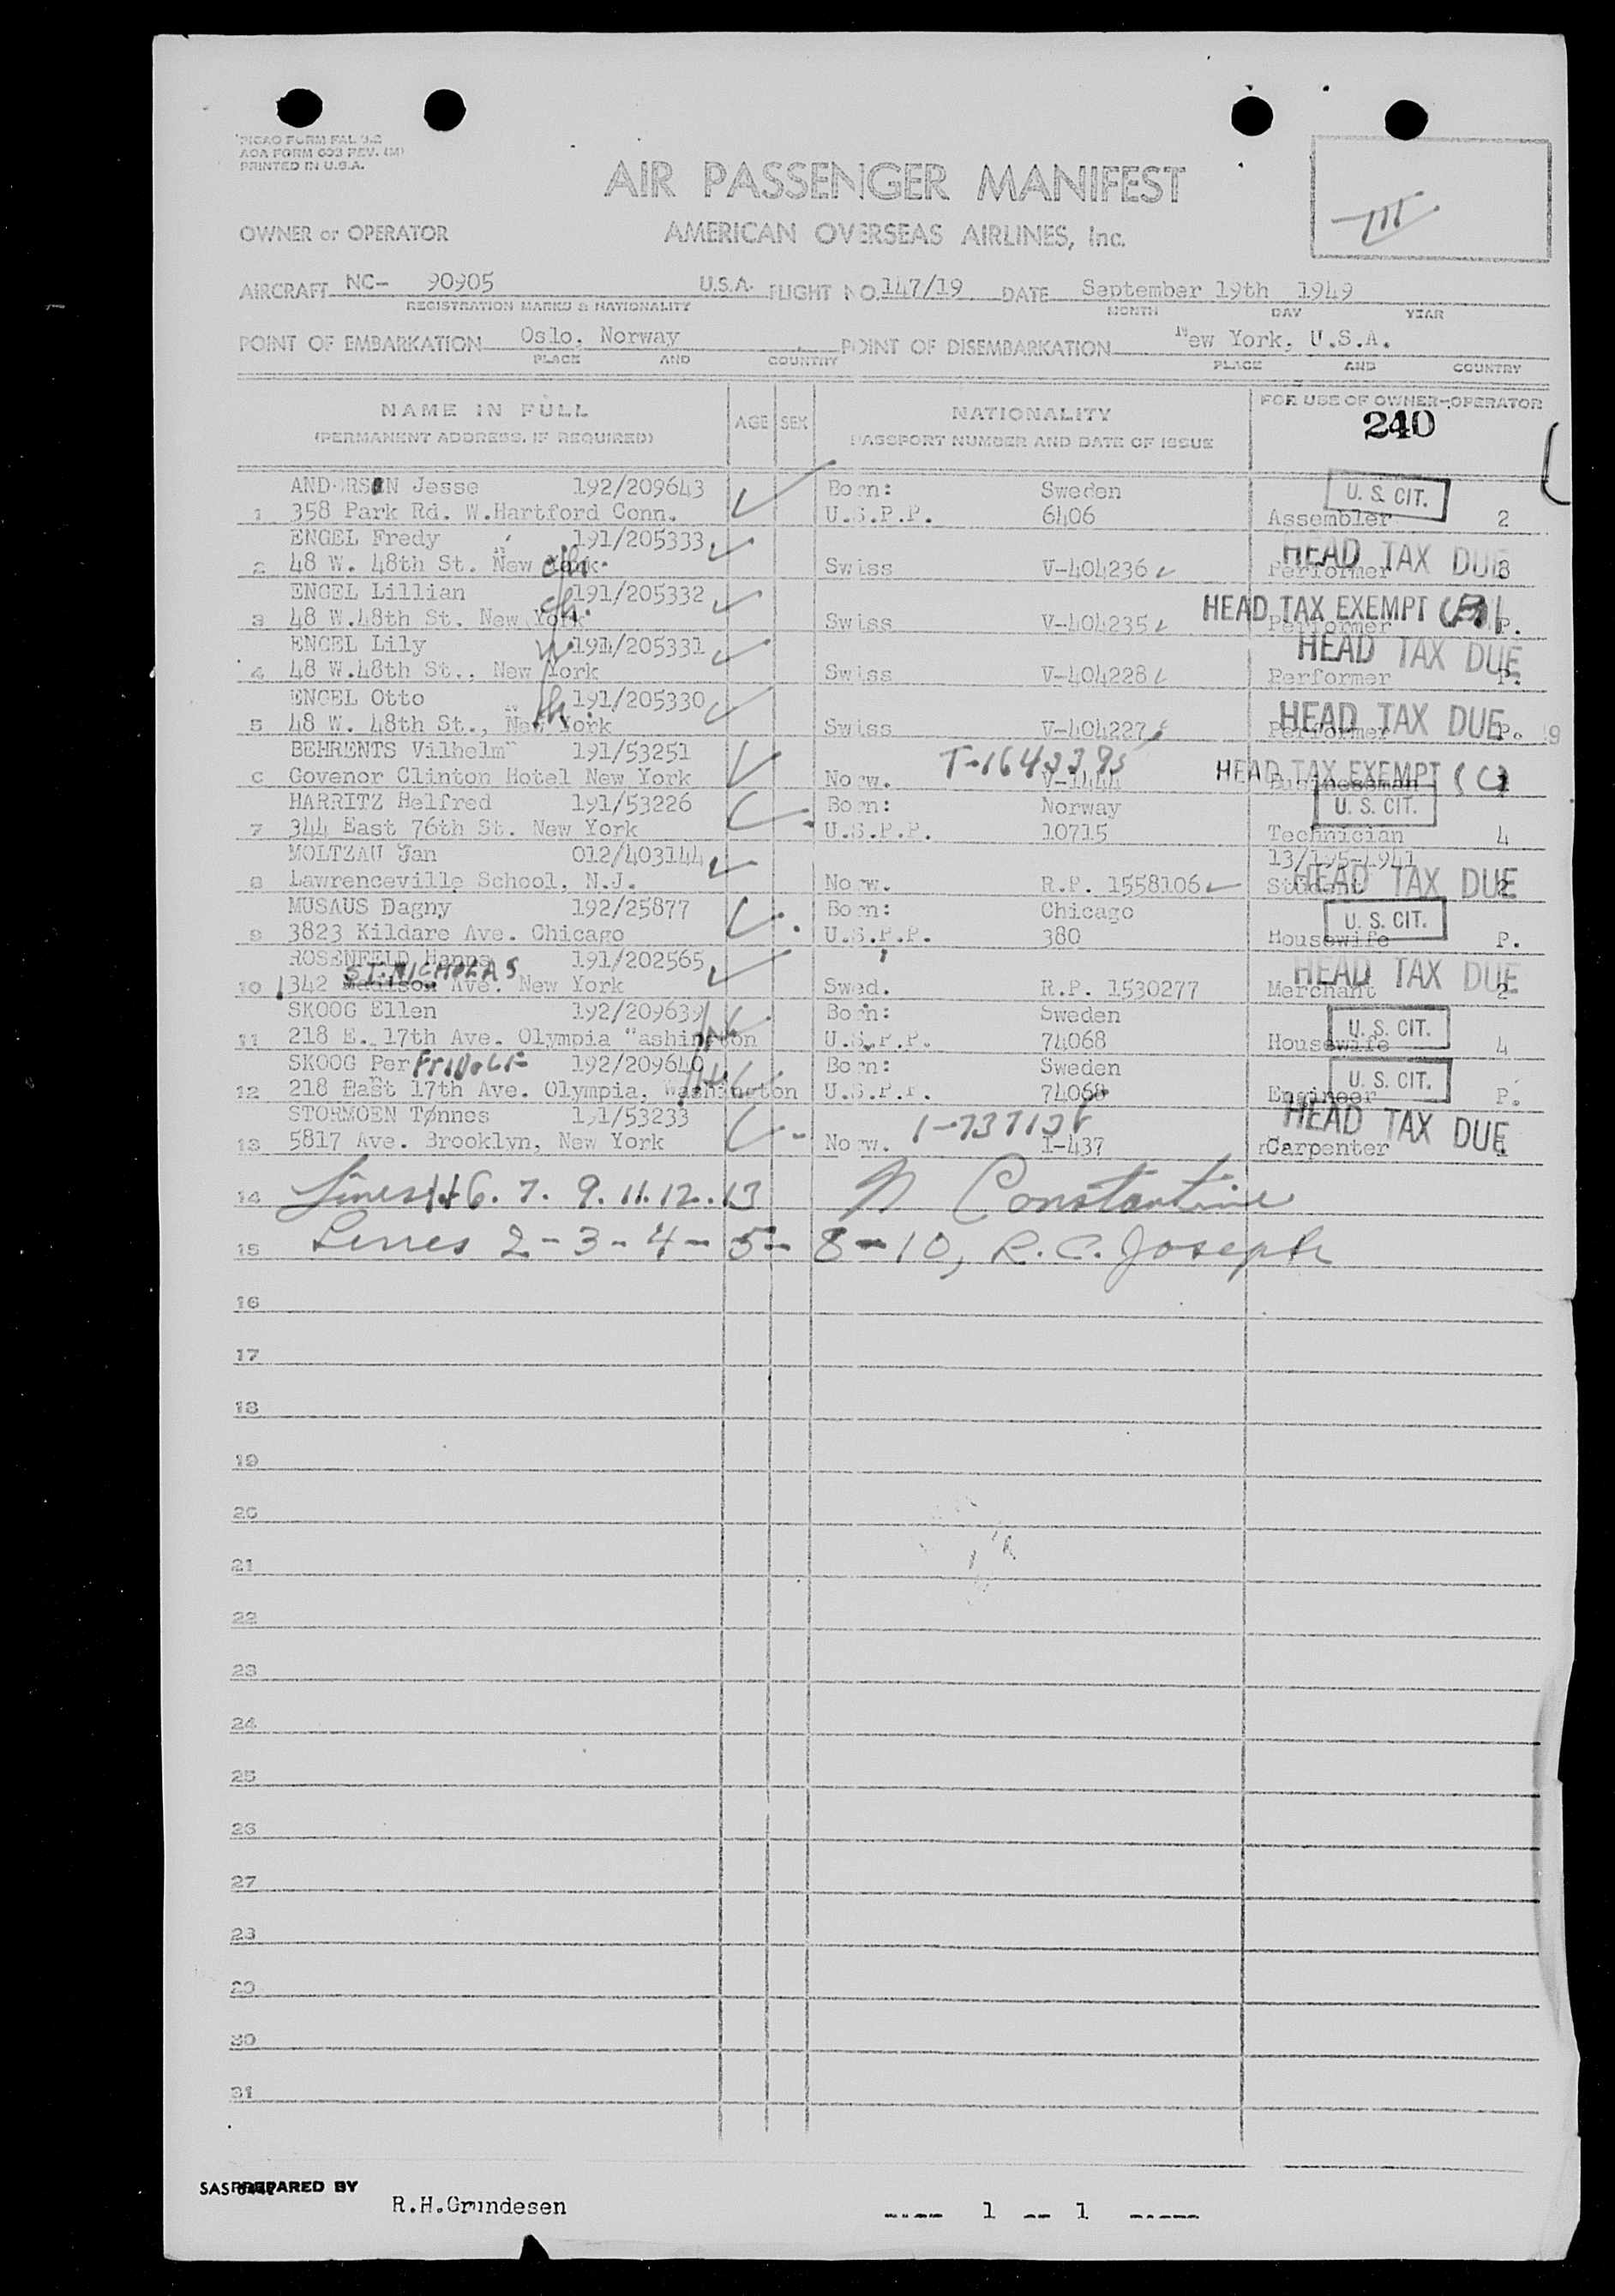 PICAO FORM FAL 3.2
AOA FORM 603 REV. (M)
PRINTED IN U.S.A.
AIR PASSENGER MANIFEST
OWNER or OPERATOR AMERICAN OVERSEAS AIRLINES, Inc.
AIRCRAFT NC- 90905 U.S.A. FLIGHT NO. 147/19 DATE September 19th 1949
REGISTRATION MARKS & NATIONALITY MONTH DAY YEAR
POINT OF EMBARKATION Oslo, Norway POINT OF DISEMBARKATION New York, U.S.A.
PLACE AND COUNTRY PLACE AND COUNTRY
NAME IN FULL AGE SEX NATIONALITY FOR USE OF OWNER-OPERATOR
(PERMANENT ADDRESS, IF REQUIRED) PASSPORT NUMBER AND DATE OF ISSUE 240
ANDERSEN Jesse 192/209643 Born: Sweden U. S. CIT.
1 358 Park Rd. W.Hartford Conn. U.S.P.P. 6406 Assembler 2
ENGEL Fredy 191/205333 HEAD TAX DUE
2 48 W. 48th St. New York. Swiss V-404236 Performer 3
ENGEL Lillian 191/205332 HEAD TAX EXEMPT
3 48 W.48th St. New York Swiss V-404235 Performer P.
ENGEL Lily 191/205331 HEAD TAX DUE
4 48 W.48th St., New York Swiss V-404228 Performer P.
ENGEL Otto 191/205330 HEAD TAX DUE
5 48 W. 48th St., New York Swiss V-404227 Performer P.
BEHRENTS Vilhelm 191/53251 T-1643395 HEAD TAX EXEMPT (C)
6 Govenor Clinton Hotel New York Norw. V-1444 Businessman
HARRITZ Helfred 191/53226 Born: Norway U. S. CIT.
7 344 East 76th St. New York U.S.P.P. 10715 Technician 4
MOLTZAU Jan 012/403144 13/195-1941 HEAD TAX DUE
8 Lawrenceville School, N.J. Norw. R.P. 1558106 Student 2
MUSAUS Dagny 192/25877 Born: Chicago U. S. CIT.
9 3823 Kildare Ave. Chicago U.S.P.P. 380 Housewife P.
ROSENFELD Hanns 191/202565 HEAD TAX DUE
ST. NICHOLAS
10 1342 Madison Ave. New York Swed. R.P. 1530277 Merchant 2
SKOOG Ellen 192/209639 Born: Sweden U. S. CIT.
11 218 E. 17th Ave. Olympia Washington U.S.P.P. 74068 Housewife 4
SKOOG Per FRIDOLF 192/209640 Born: Sweden U. S. CIT.
12 218 East 17th Ave. Olympia, Washington U.S.P.P. 74068 Engineer P.
STORMOEN Tønnes 191/53233 HEAD TAX DUE
13 5817 Ave. Brooklyn, New York Norw. I-437 Carpenter
14 Lines 1 6. 7. 9. 11. 12. 13 N Constantine
15 Lines 2-3-4-5-8-10, R. C. Joseph
16
17
18
19
20
21
22
23
24
25
26
27
28
29
30
31
PREPARED BY
R.H.Grundesen 1 -- 1